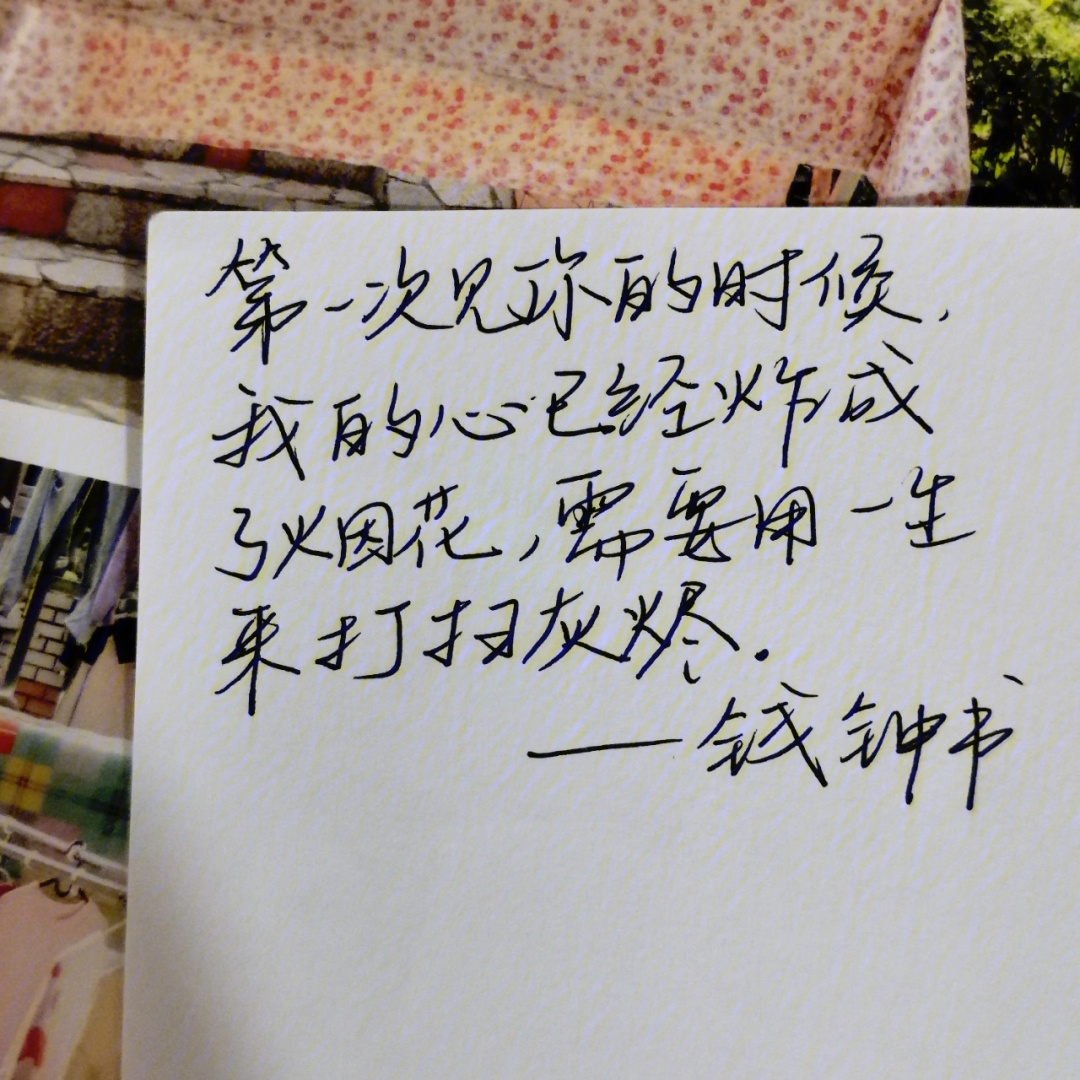 第一次见你的时候，
我的心已经炸成
了烟花，需要用一生
来打扫灰烬．
——钱钟书